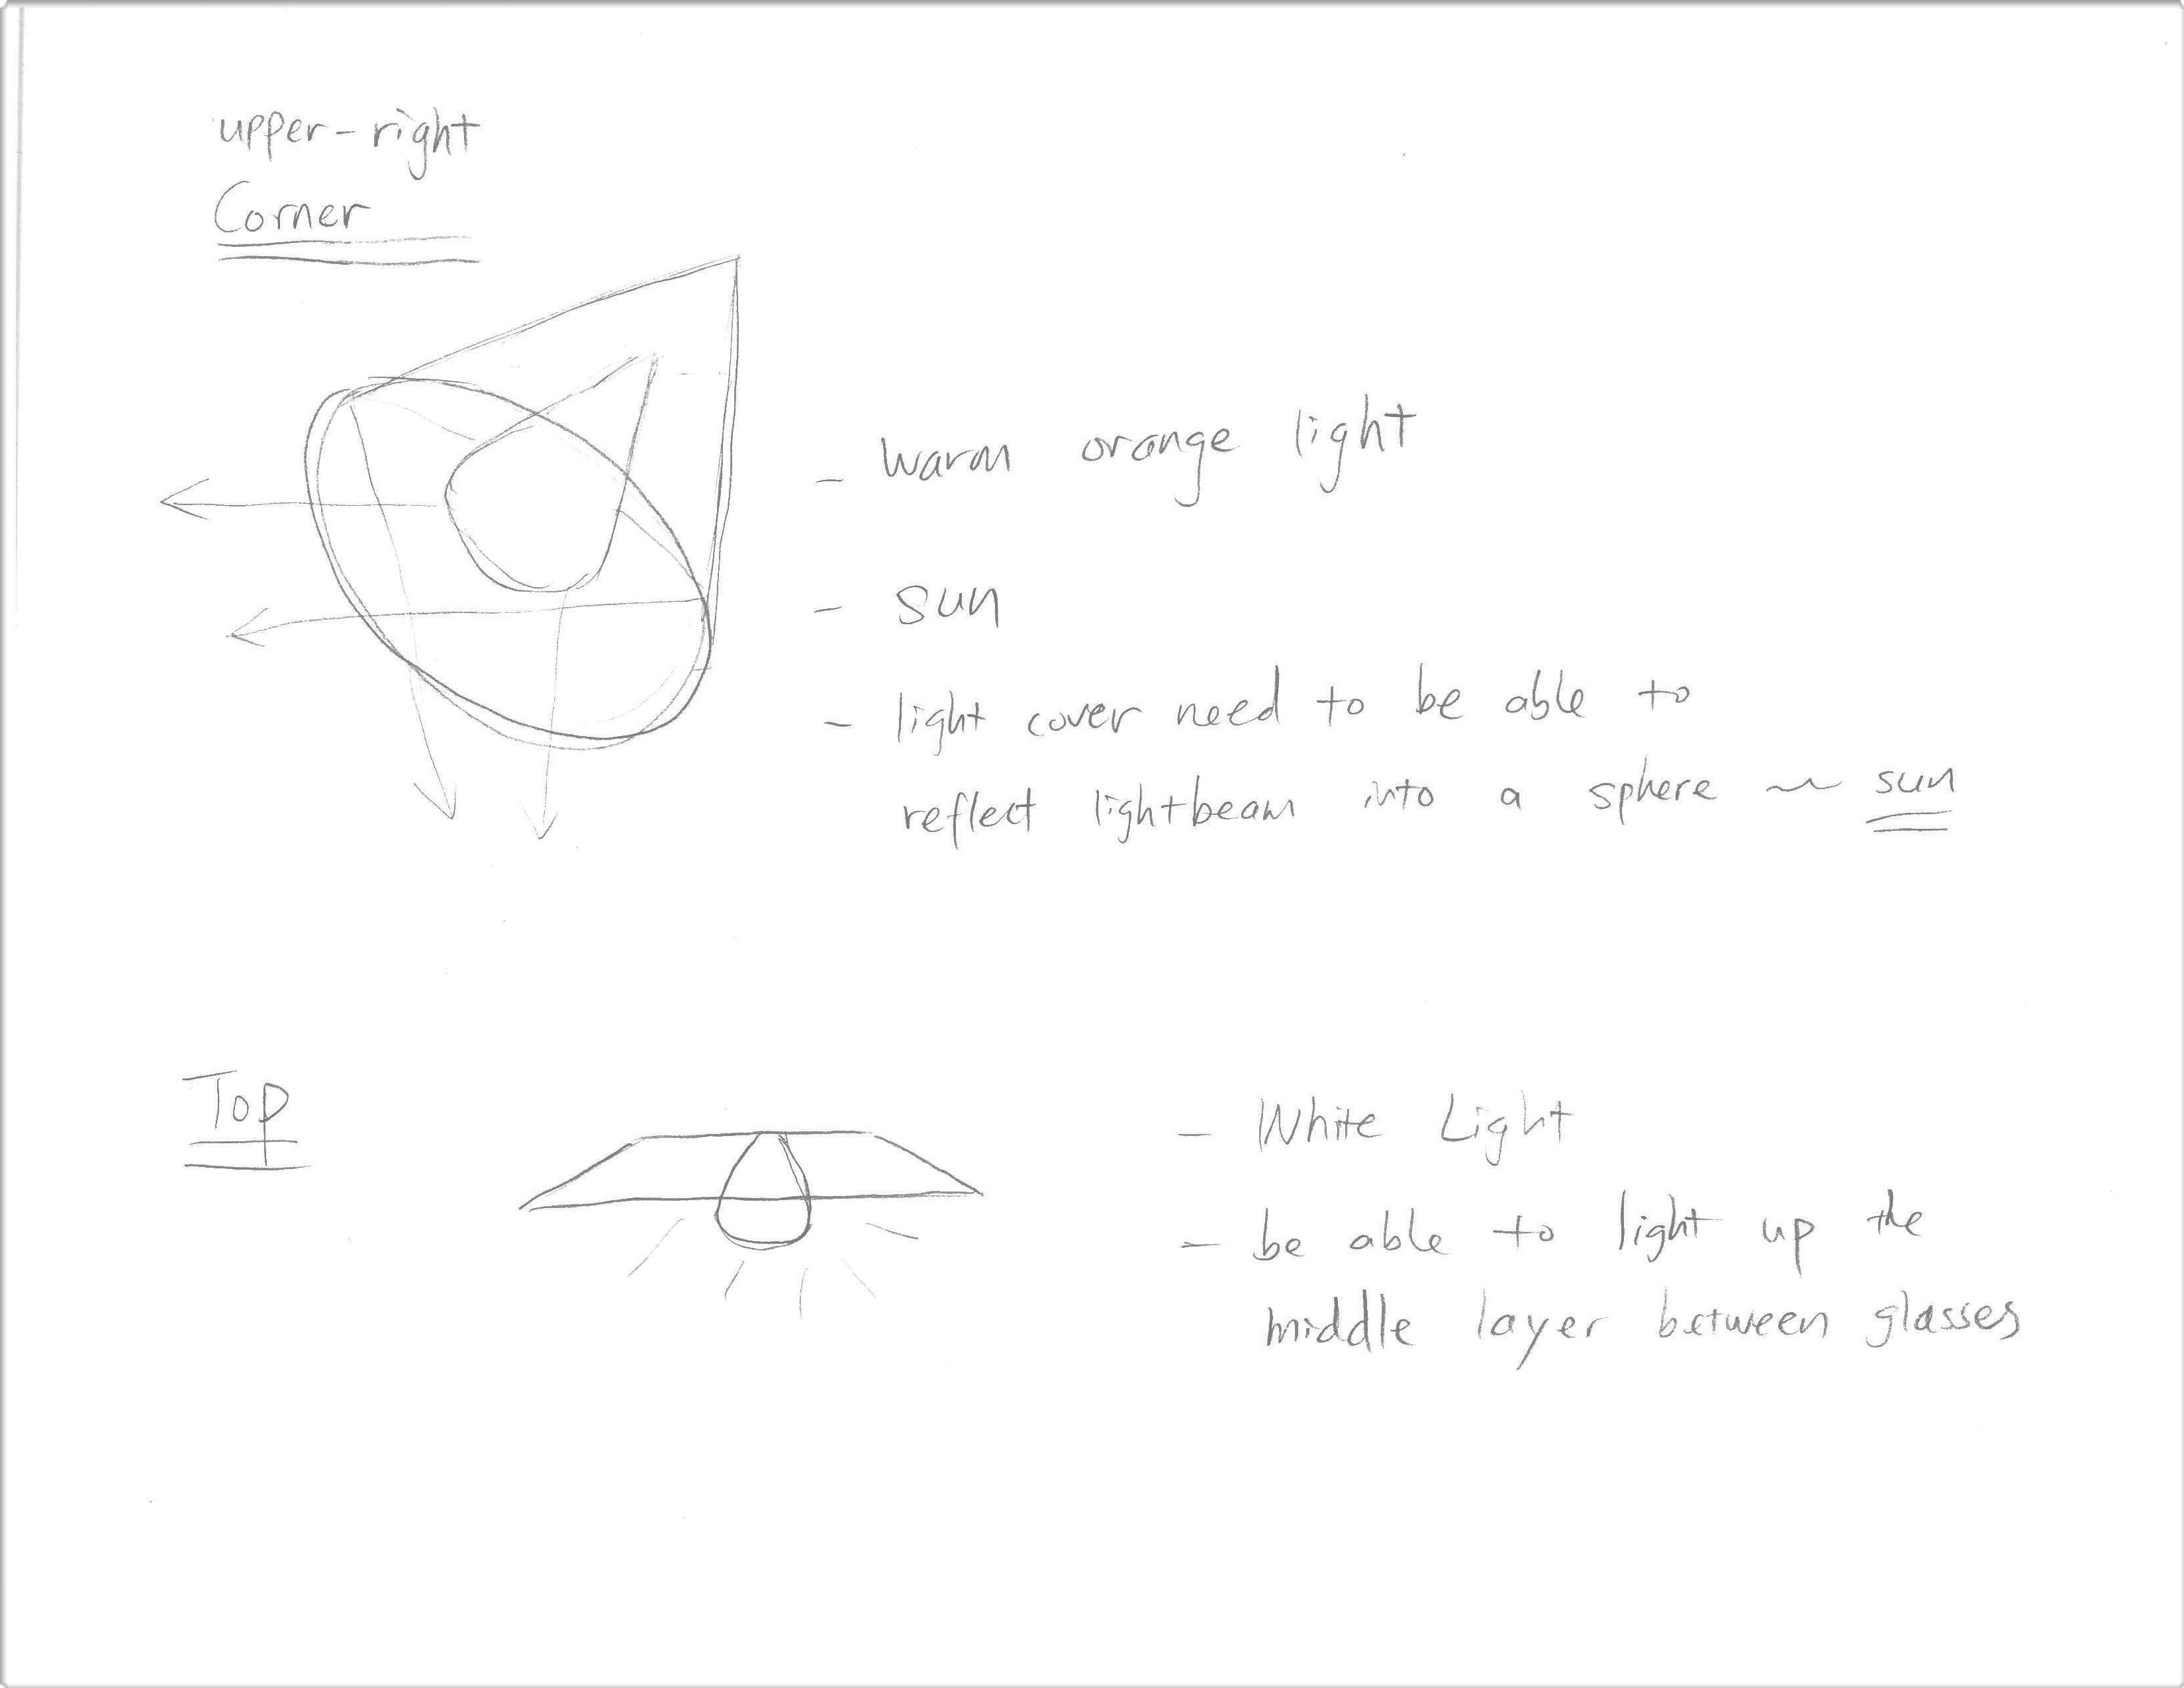 upper-right
Corner
- warm orange light
- sun
- light cover need to be able to
reflect lightbeam into a sphere ~ sun
Top
- White Light
- be able to light up the
middle layer between glasses